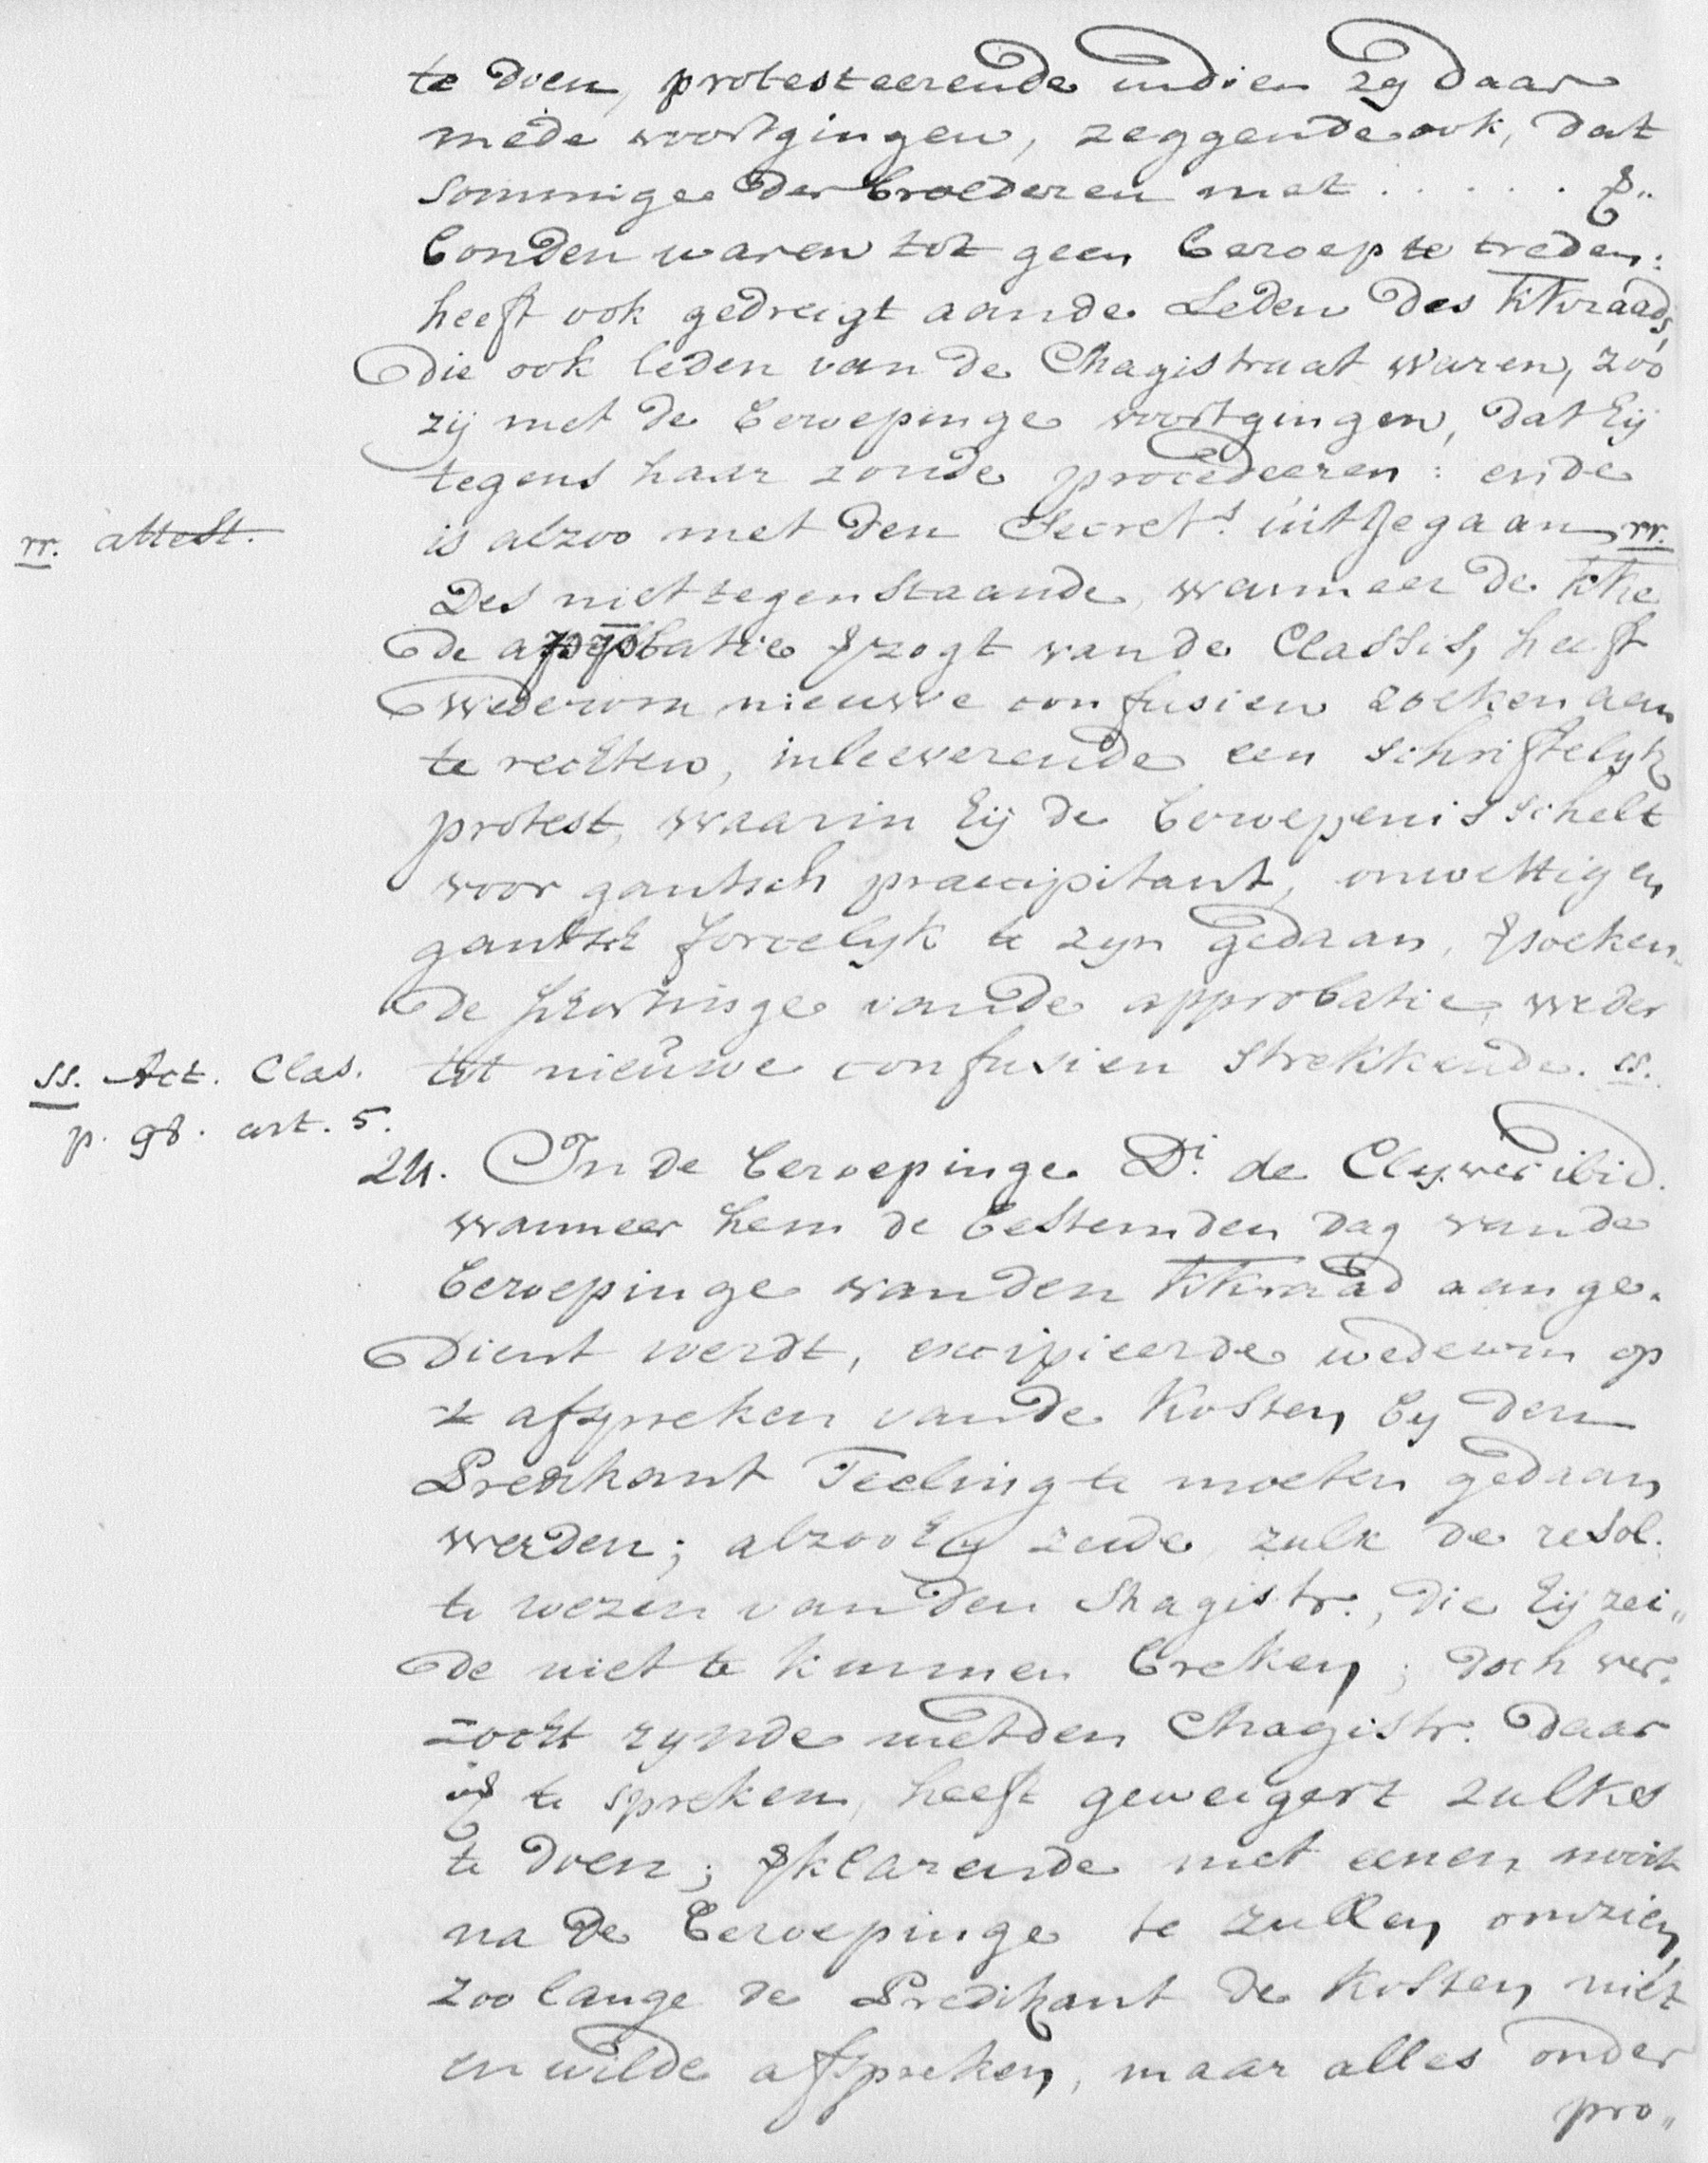 te doen, protesteerende indien zy daar
mede voortgingen, zeggende ook, dat
sommige der broederen met . . . . . v„
bonden waren tot geen beroep te treden:
heeft ook gedreigt aande Leden des KKraads,
die ook leden van de Magistraat waren, zoo
zij met de beroepinge voortgingen, dat hij
tegens haar zoude procedeeren: ende
rr. attest.
is alzoo met den Secret.s uitgegaan rr.
Des niettegenstaande, wanneer de KKe
de approbatie vzogt vande Classis, heeft
wederom nieuwe confusien zoeken aen
te rechten, inleeverende een schriftelyk
protest, waarin hij de beroepenis schelt
voor gantsch praecipitant, onwettig en
gantsch forcelyk te zyn gedaan, vsoeken-
de vhortinge vande approbatie, weder
ss. Act. Clas.
p. 98. art. 5.
tot nieuwe confusien strekkende. ss.
24. In de beroepinge D.i de Clyver ibid.
wanneer hem de bestemden dag vande
beroepinge vanden KKraad aange-
dient werdt, excipieerde wederom op
't afspreken vande Kosten by den
Predikant Teeling te moeten gedaan
werden; alzoo hy zeide zulx de resol.
te wezen vanden Magistr., die hij zei„
de niet te kunnen breken; doch ver-
zocht zynde met den Magistr. daar
of te spreken, heeft geweigert zulkes
te doen; vklarende met eenen nooit
na de beroepinge te zullen omzien,
zoo lange de Predikant de Kosten niet
en wilde afspreken, maar alles onder
pro„